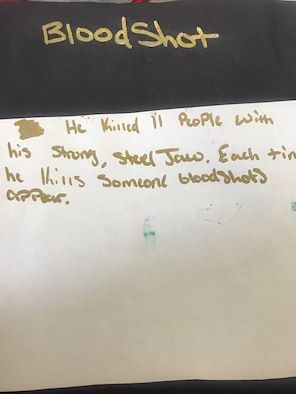 BloodShot
He Killed 11 People with
his Strong, Steel Jaw. Each tim
he Kills Someone bloodShots
appear.